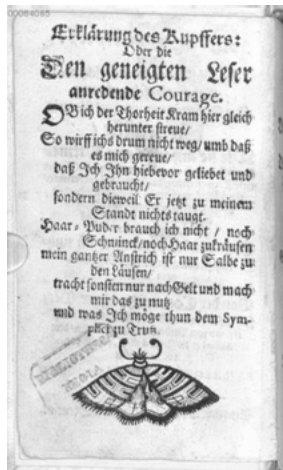 00084065
Erklärung des Kupffers:
Oder die
Den geneigten Leser
anredende Courage.
OB ich der Thorheit Kram hier gleich
herunter streue/
So wirff ichs drum nicht weg/ umb daß
es mich gereue/
daß Ich Ihn hiebevor geliebet und
gebraucht/
sondern dieweil Er jetzt zu meinem
Standt nichts taugt.
Haar-Puder brauch ich nicht / noch
Schminck/noch Haar zukräusen
mein gantzer Anstrich ist nur Salbe zu
den Läusen/
tracht sonsten nur nach Gelt und mach
mir das zu nutz
und was Ich möge thun dem Sym-
plici zu Trutz.